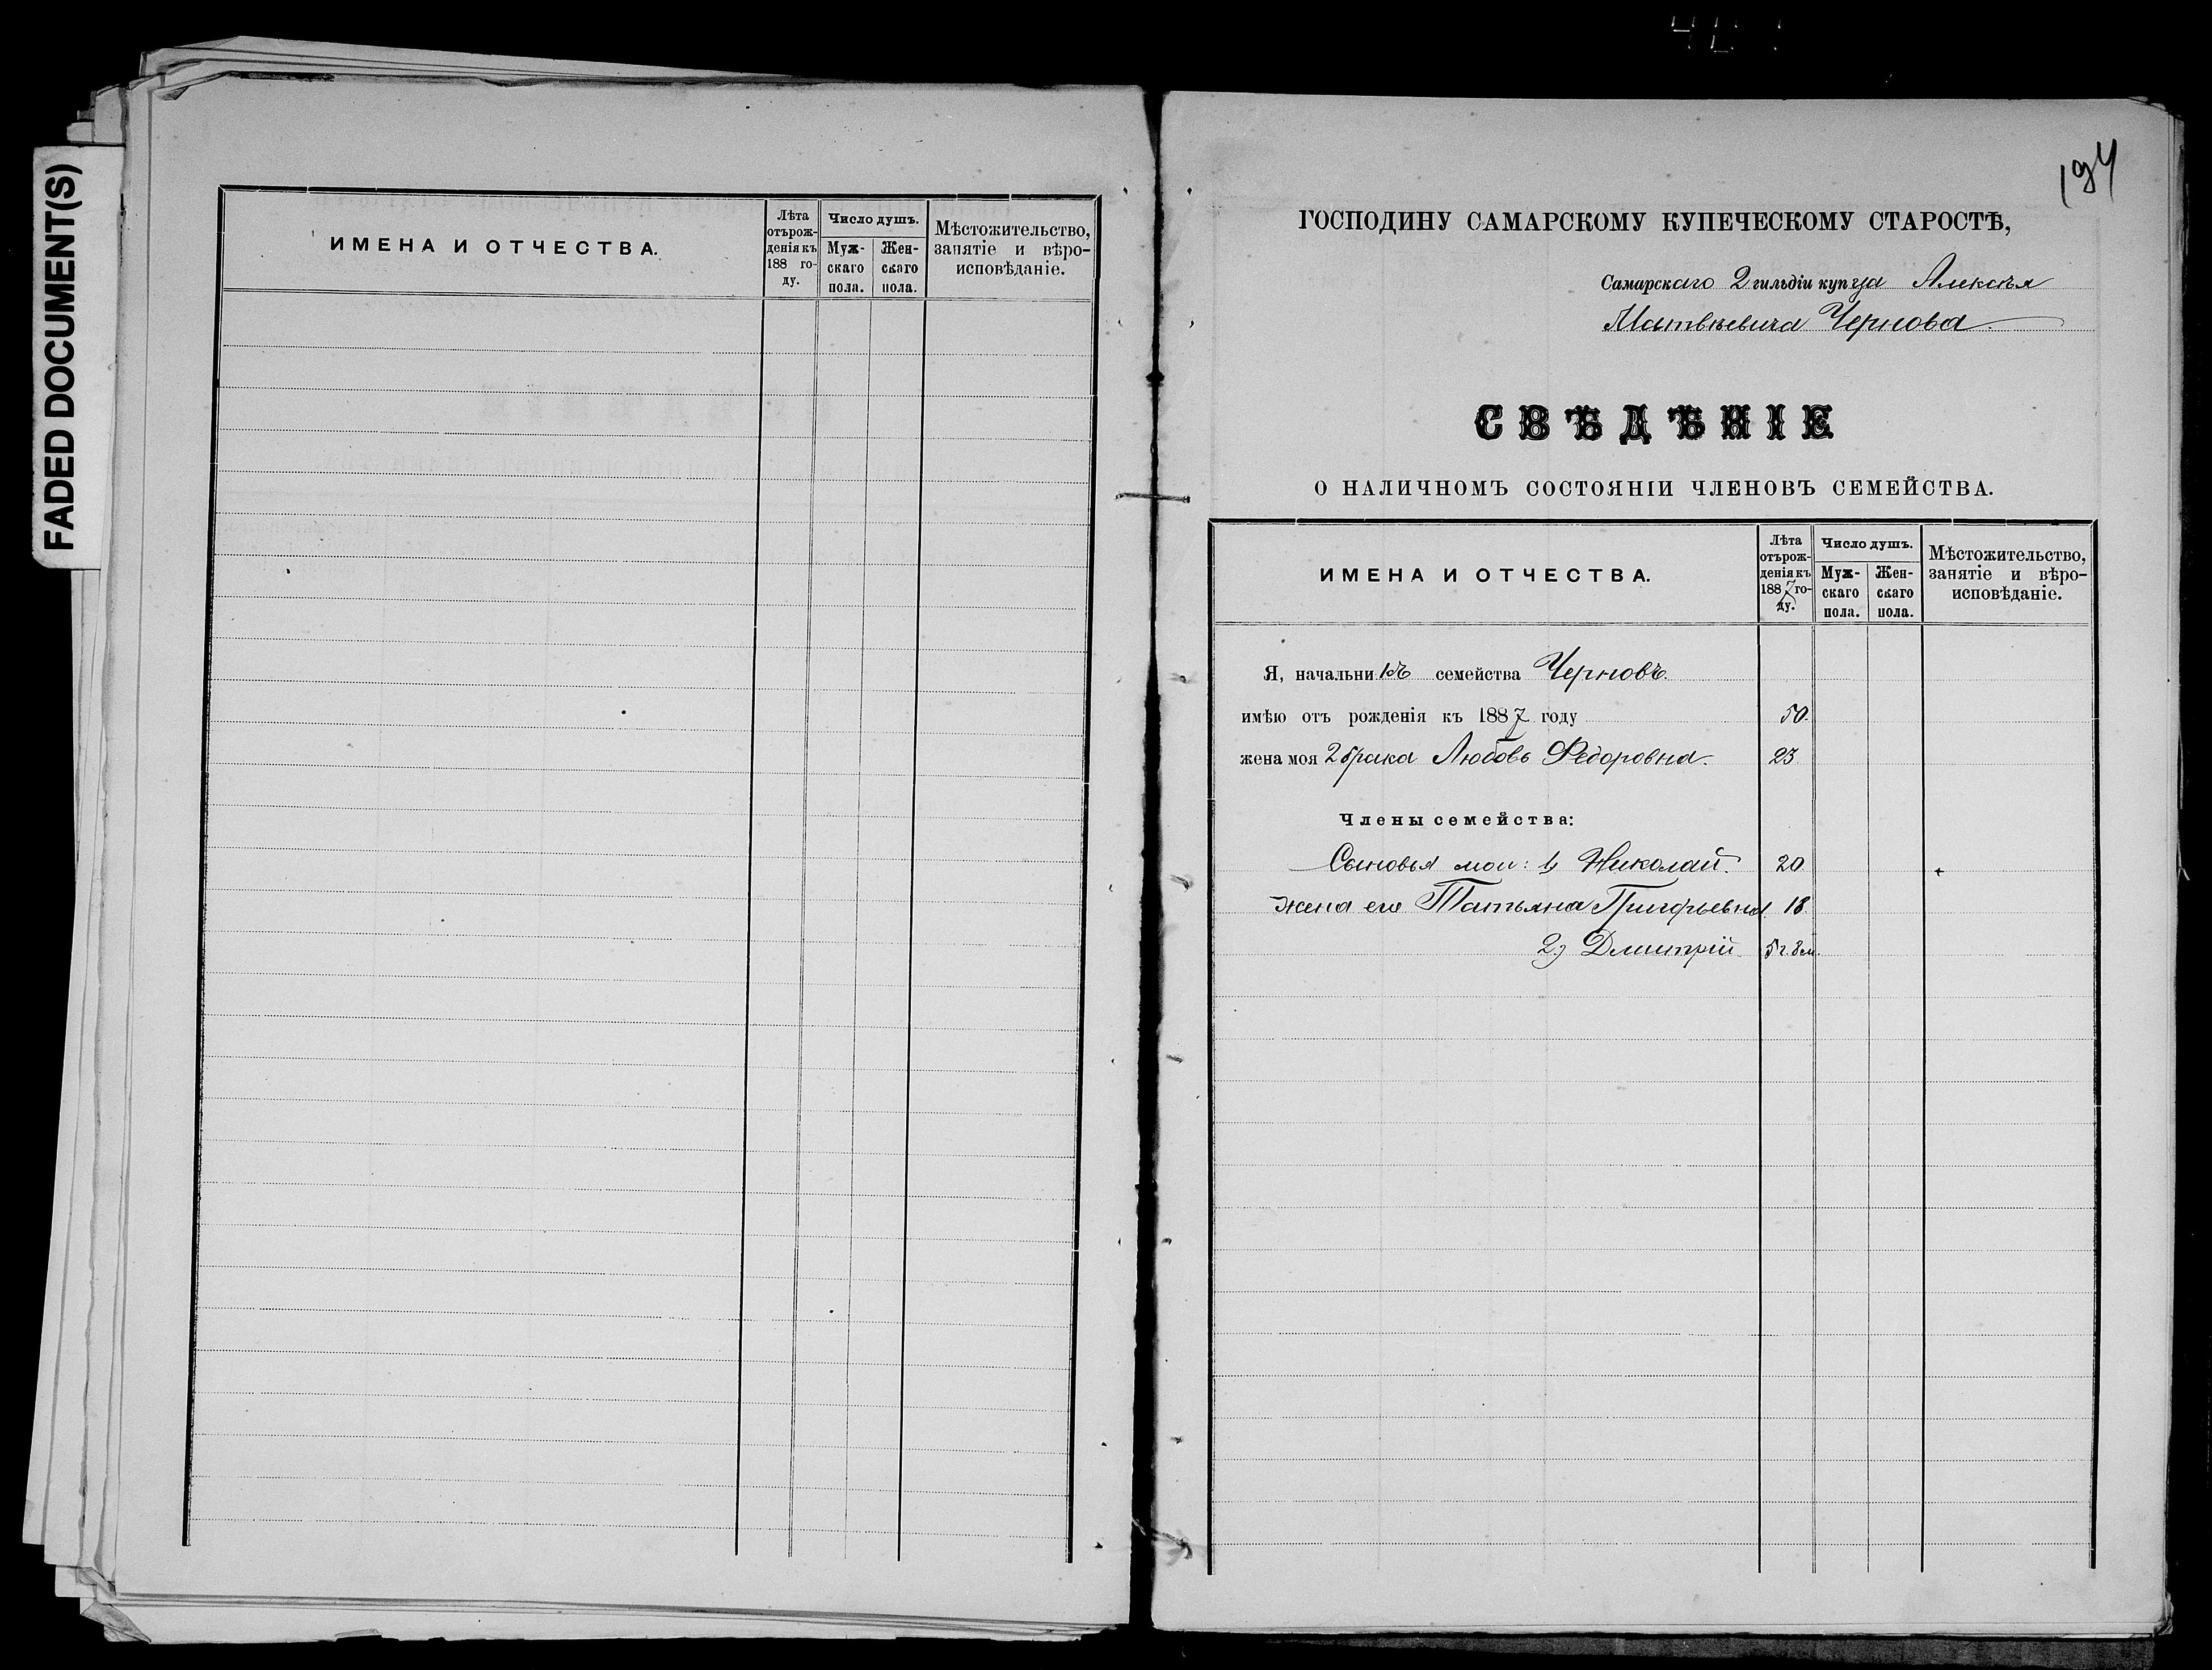 FADED DOCUMENT(S)
ИМЕНА И ОТЧЕСТВА.
Лѣта
отърож-
денія къ
188 го-
ду.
Число душъ.
Муж-
скаго
пола.
Жен-
скаго
пола.
Мѣстожительство,
занятіе и вѣро-
исповѣданіе.
194
ГОСПОДИНУ САМАРСКОМУ КУПЕЧЕСКОМУ СТАРОСТѢ,
Самарскаго 2 гильдіи купца Алексѣя
Матвѣевича Чернова
СВѢДѢНІЕ
О НАЛИЧНОМЪ СОСТОЯНІИ ЧЛЕНОВЪ СЕМЕЙСТВА.
ИМЕНА И ОТЧЕСТВА.
Лѣта
отърож-
денія къ
1887 го-
ду.
Число душъ.
Муж-
скаго
пола.
Жен-
скаго
пола.
Мѣстожительство,
занятіе и вѣро-
исповѣданіе.
Я, начальникъ семейства Черновъ.
имѣю отъ рожденія къ 1887 году 50.
жена моя 2 брака Любовь Федоровна. 23
Члены семейства:
Сыновья мои: 1) Николай. 20
жена его Татьяна Григорьевна 18.
2) Дмитрій 5 г. 8 м.